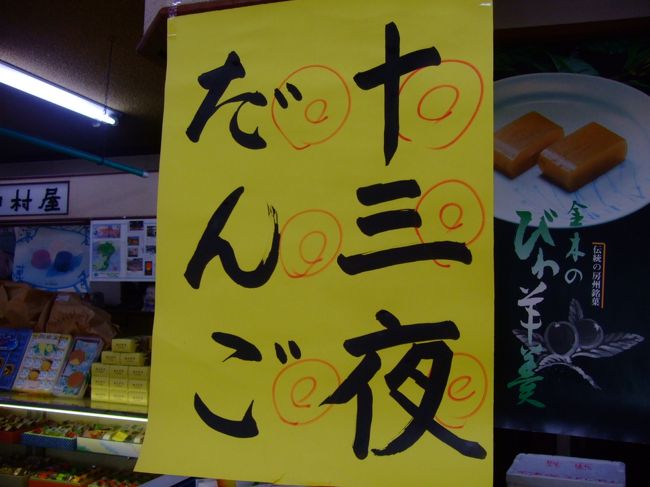 十三夜
だんご
村屋
金木の
びわ羊羹
伝統の房州銘菓